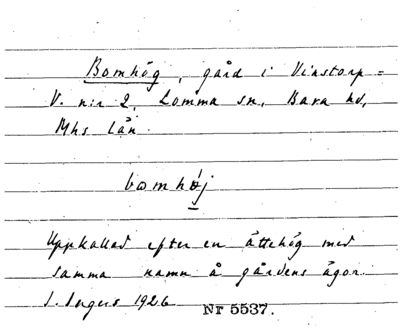 Bomhög, gård i Vinstorp =
V. n:r 2, Lomma sn, Bara hd,
Mhs län.
bomhǿj
Uppkallad efter en ättehög med
samma namn å gårdens ägor.
1926 Nr 5537.